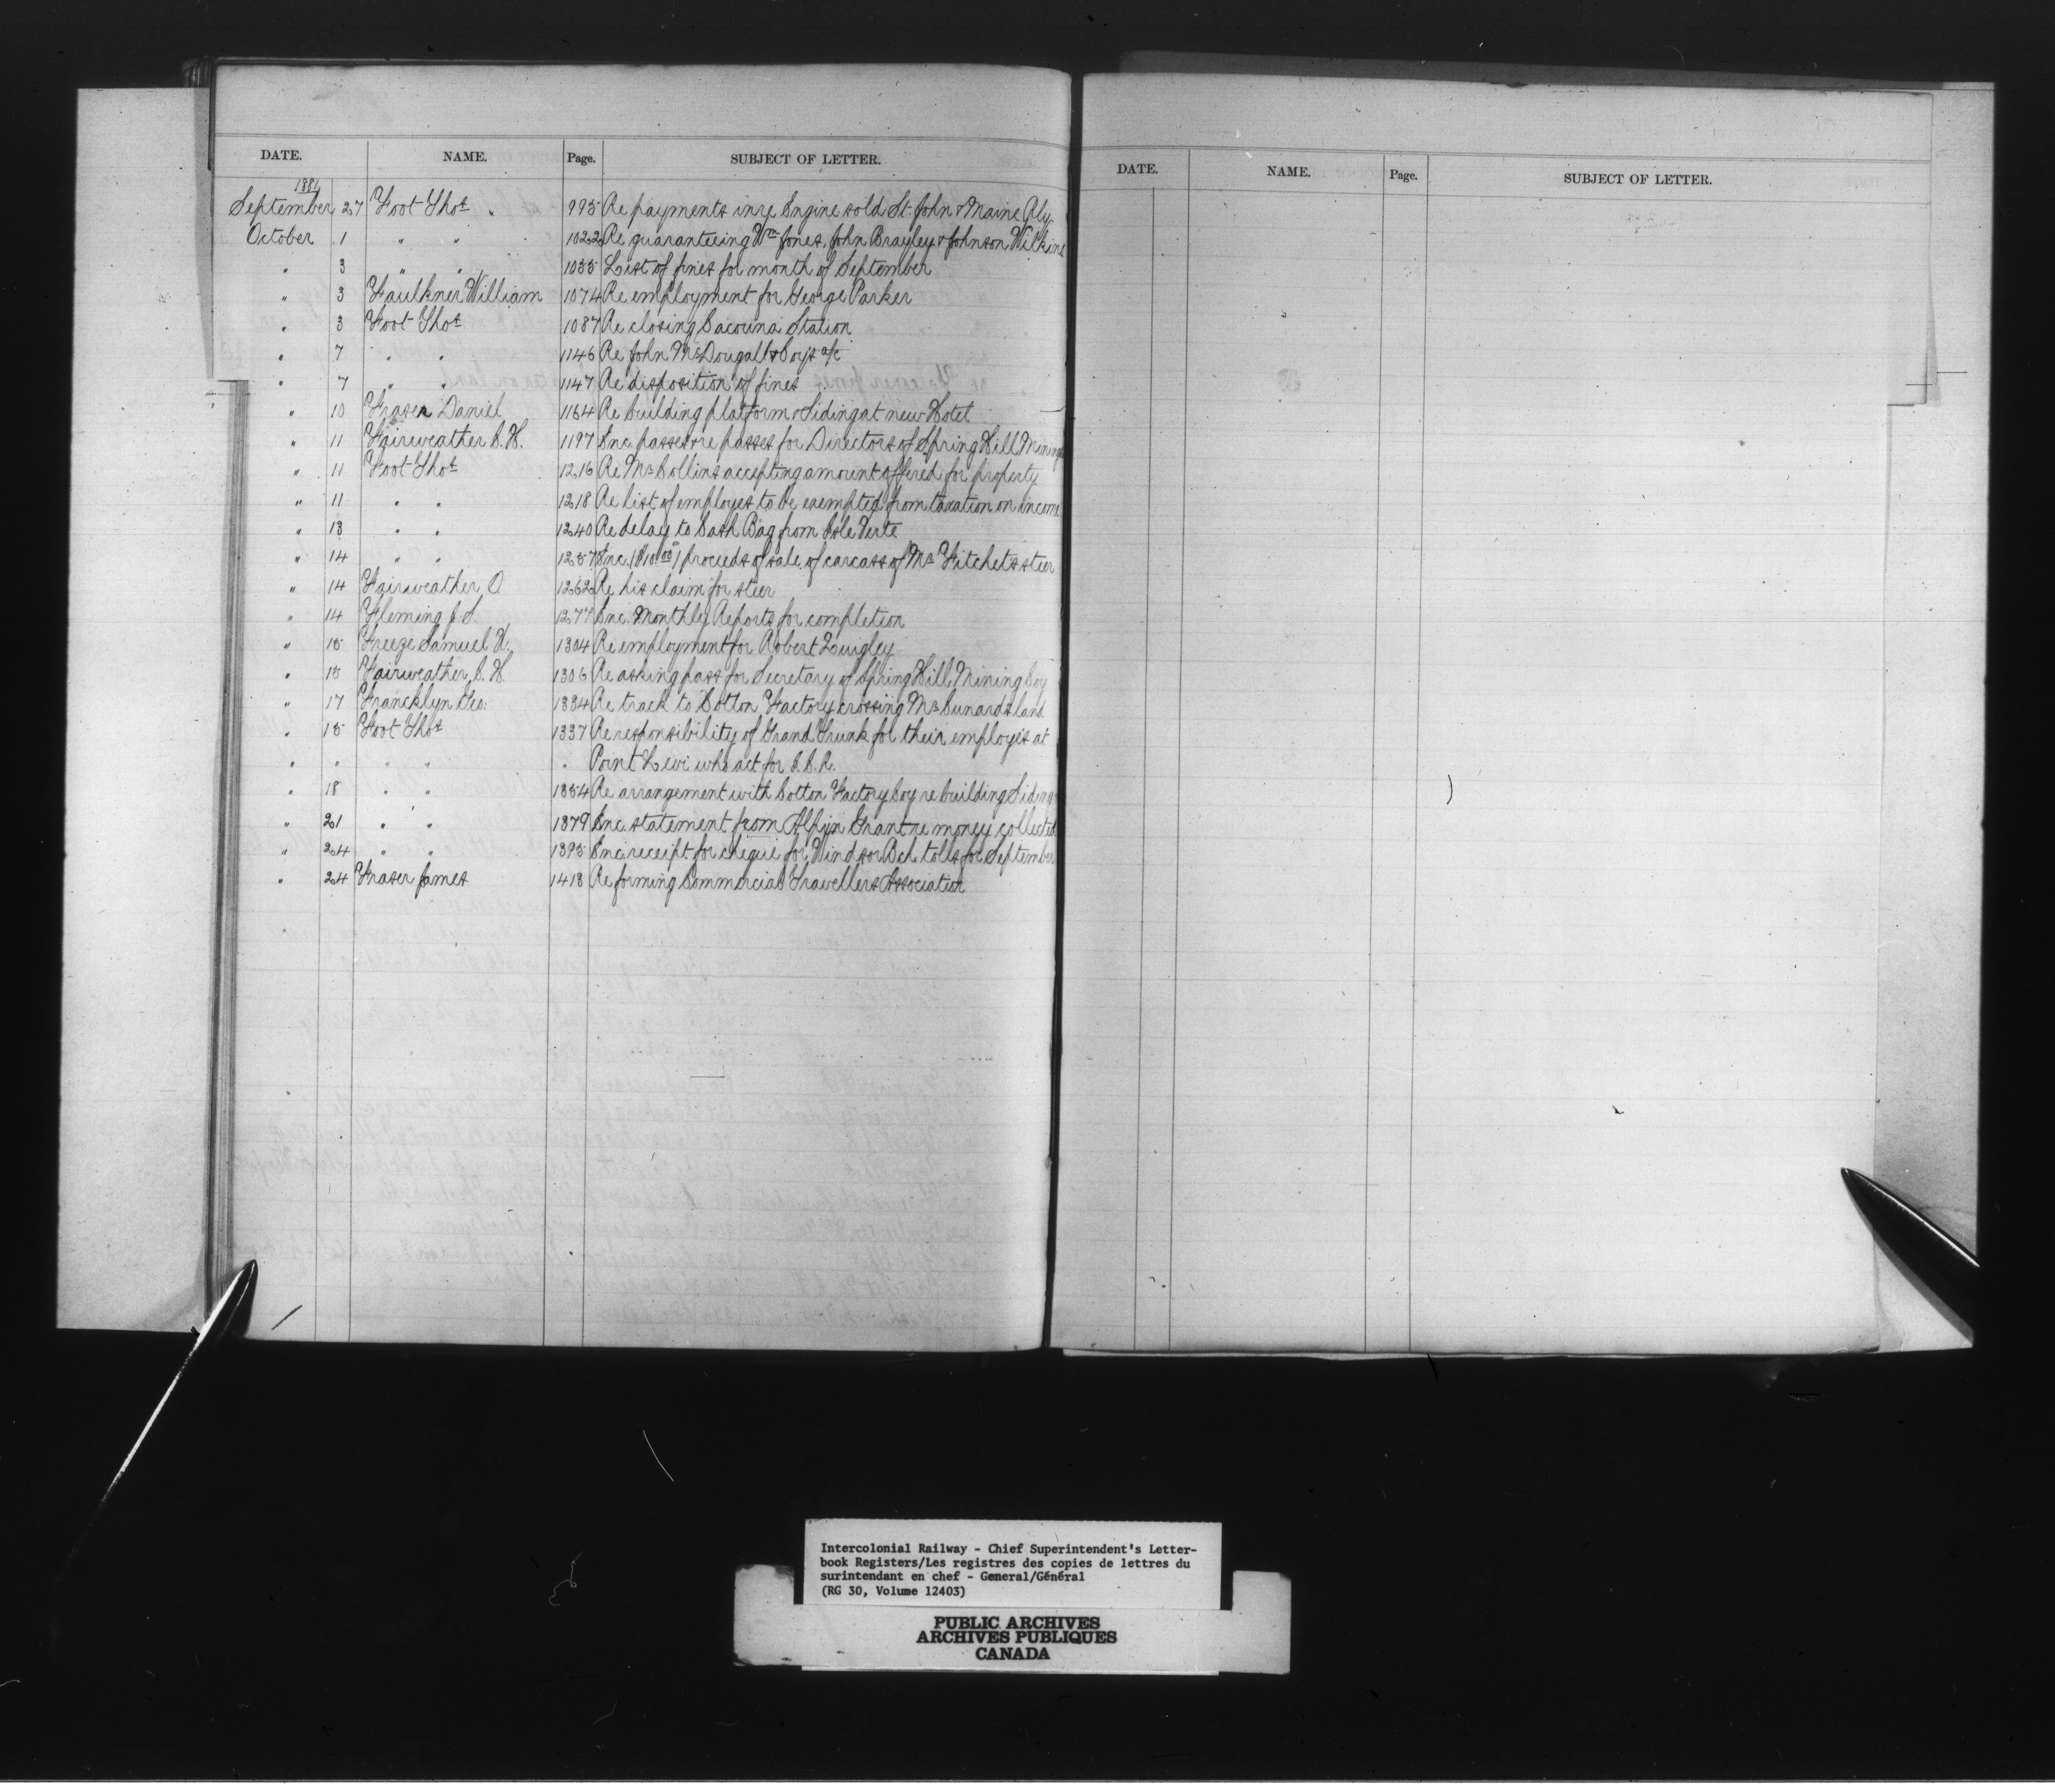 DATE. NAME. Page. SUBJECT OF LETTER.
1881
September 27 Foot Thos " 995 Re payments in re Engine sold St. John & Maine Rly
October 1 " " 1022 Re guaranteeing Wm Jones, John Brayley & Johnson Wilkins
" 3 " " 1055 List of fines for month of September
" 3 Faulkner William 1074 Re employment for George Parker
" 3 Foot Thos 1087 Re closing Cacouna Station
" 7 " " 1146 Re John McDougall & Coy's a/c
" 7 " " 1147 Re disposition of fines
" 10 Fraser Daniel 1164 Re building platform & Siding at new Hotel
" 11 Fairweather C. H. 1197 Inc. passes & re passes for Directors of Spring Hill Mining
" 11 Foot Thos 1216 Re Mr Collins accepting amount offered for property
" 11 " " 1218 Re list of employes to be exempted from taxation on income
" 13 " " 1240 Re delay to Cash Bag from Isle Verte
" 14 " " 1257 Inc. ($10.00) proceeds of sale of carcass of Mr Fitchets steer
" 14 Fairweather O 1262 Re his claim for steer
" 14 Fleming J. S. 1277 Inc. Monthly Reports for completion
" 15 Freeze Samuel H. 1304 Re employment for Robert Quigley
" 15 Fairweather C. H. 1306 Re asking pass for Secretary of Spring Hill Mining Coy
" 17 Francklyn Geo: 1334 Re track to Cotton Factory crossing Mr Cunards land
" 15 Foot Thos 1337 Re responsibility of Grand Trunk for their employes at
" " " " " Point Levi who act for I. C. R.
" 18 " " 1354 Re arrangement with Cotton Factory Coy re building Siding
" 21 " " 1379 Inc. statement from Alpin Grant re money collected
" 24 " " 1395 Inc. receipt for cheque for Windsor Bch tolls for September
" 24 Fraser James 1418 Re forming Commercial Travellers Association
DATE. NAME. Page. SUBJECT OF LETTER.
Intercolonial Railway - Chief Superintendent's Letter-
book Registers/Les registres des copies de lettres du
surintendant en chef - General/Général
(RG 30, Volume 12403)
PUBLIC ARCHIVES
ARCHIVES PUBLIQUES
CANADA